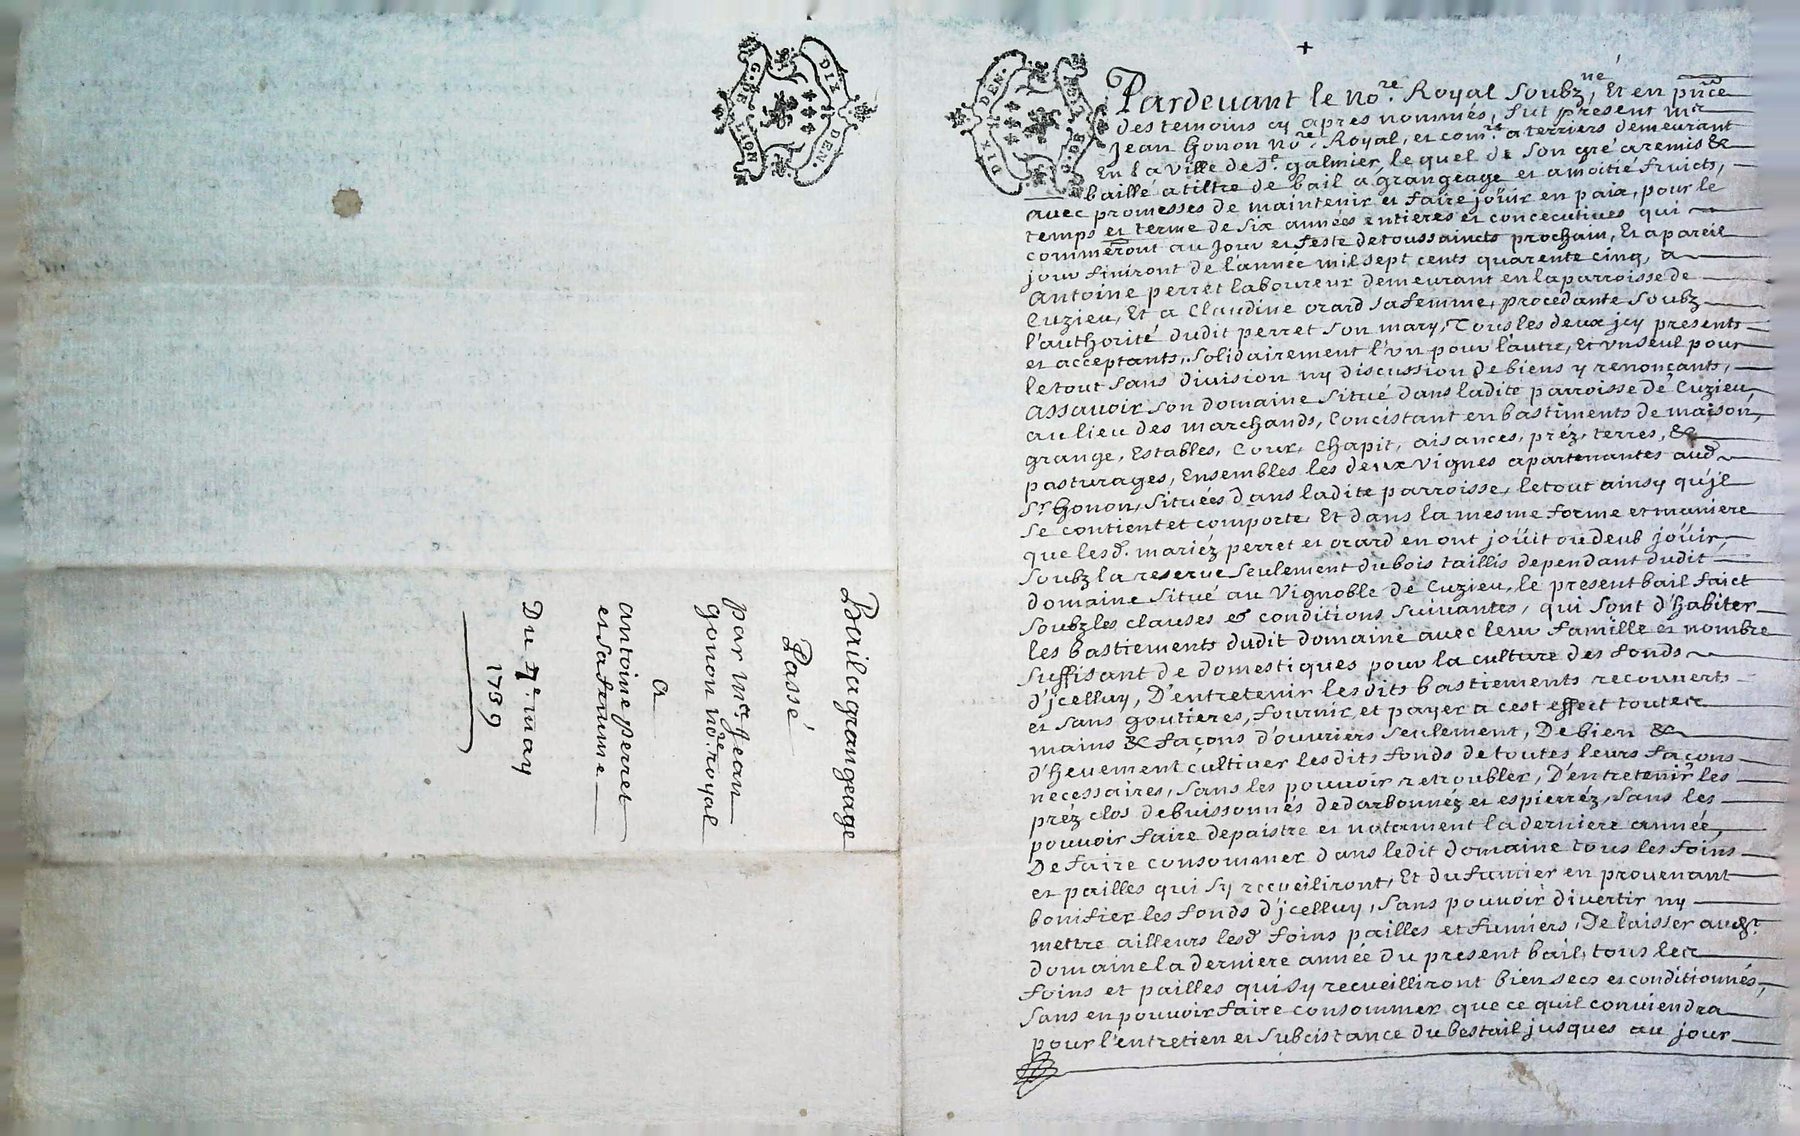 G. DE LION
DIX DEN.
Bail a grangeage
Passé
par Mre Jean
Gonon Nore. royal
a
antoine perret
et sa femme
Du 4e. may
1739
DIX DEN.
G. DE LION
+
Pardevant le Nore. Royal Soubzné, Et en pnce
des temoins cy apres nommés, fut present Mre
Jean Gonon Nore. Royal, et comre. a terriers demeurant
En la ville de St. galmier, lequel de son gré a remis &
baillé a tiltre de bail a grangeage et a moitié fruicts,
avec promesses de maintenir et faire joüir en paix, pour le
temps et terme de six années entieres et concecutives qui
commeront au jour et feste de toussaincts prochain, Et a pareil
jour finiront de l'année mil sept cents quarente cinq, a
Antoine perret laboureur demeurant en la parroisse de
Cuzieu, Et a Claudine orard sa femme, procedante soubz
l'authorité dudit perret son mary, Tous les deux jcy presents
et acceptants, solidairement l'vn pour l'autre, Et vn seul pour
le tout sans division ny discussion de biens y renonçants,
assavoir son domaine situé dans ladite parroisse de Cuzieu
au lieu des marchands, Concistant en bastiments de maison,
grange, Estables, Cour, Chapit, aisances, préz, terres, &
pasturages, Ensembles les deux vignes apartenantes aud
Sr. Gonon, situées dans ladite parroisse, le tout ainsy qu'jl
se contient et comporte, Et dans la mesme forme et maniere
que lesd. mariéz perret et orard en ont joüit ou deub joüir,
soubz la reserve seulement du bois taillis dependant dudit
domaine situé au Vignoble de Cuzieu, le present bail faict
soubz les clauses et conditions suivantes, qui sont d'habiter
les bastiements dudit domaine avec leur famille et nombre
suffisant de domestiques pour la culture des fonds
d'jcelluy, D'entretenir lesdits bastiements recouverts
et sans goutieres, fournir et payer a cest effect toutes
mains & façons d'ouvriers seulement, De bien &
d'heuement cultiver lesdits fonds de toutes leurs façons
necessaires, sans les pouvoir retroubler, D'entretenir les
préz clos debuissonnés dedarbonnéz et espierréz, sans les
pouvoir faire depaistre et notament la derniere année,
De faire consommer dans ledit domaine tous les foins
et pailles qui sy recueiliront, Et du fumier en provenant
bonifier les fonds d'jcelluy, sans pouvoir divertir ny
mettre ailleurs lesd foins pailles et fumiers, De laisser audt
domaine la derniere année du present bail, tous les
foins et pailles qui sy recueilliront bien secs et conditionnés,
sans en pouvoir faire consommer que ce quil conviendra
pour l'entretien et subcistance du bestail jusques au jour